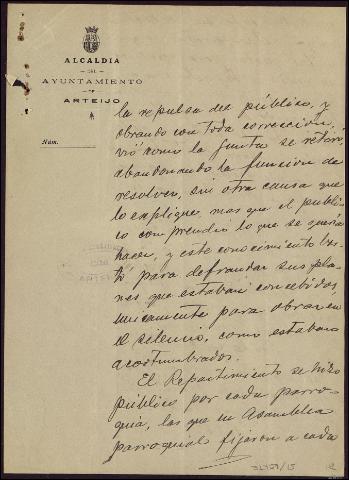 ALCALDÍA
DEL
AYUNTAMIENTO
DE
ARTEIJO
Núm.
la repulsa del público, y
obrando con toda corrección,
vió como la Junta se retiró,
abandonando la función de
resolver, sin otra causa que
lo explique, mas que el públi-
co comprendió lo que se quería
hacer, y este conocimiento bas-
tó para defraudar sus pla-
nes que estaban concebidos
unicamente para obrar en
el silencio, como estaban
acostumbrados.
El Repartimiento se hizo
público por cada parro-
quia, las que en Asamblea
parroquial fijaron a cada